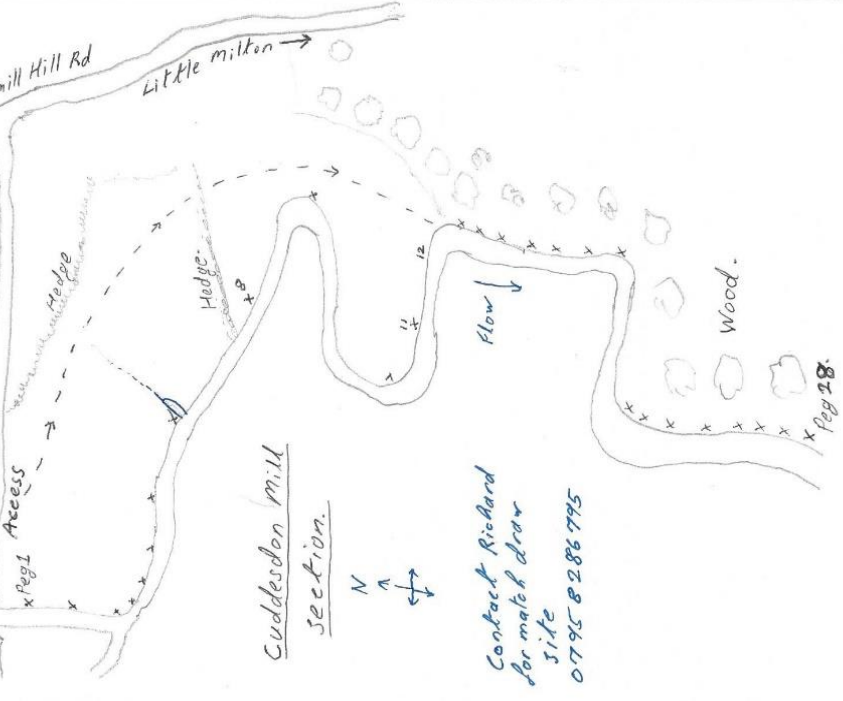 mill Hill Rd
Little Milton
Access
Peg1
Hedge
Hedge.
8
12
11
Flow
Wood.
Peg 28.
Cuddesdon Mill
section.
N
Contact Richard
for match draw
site
07958286795